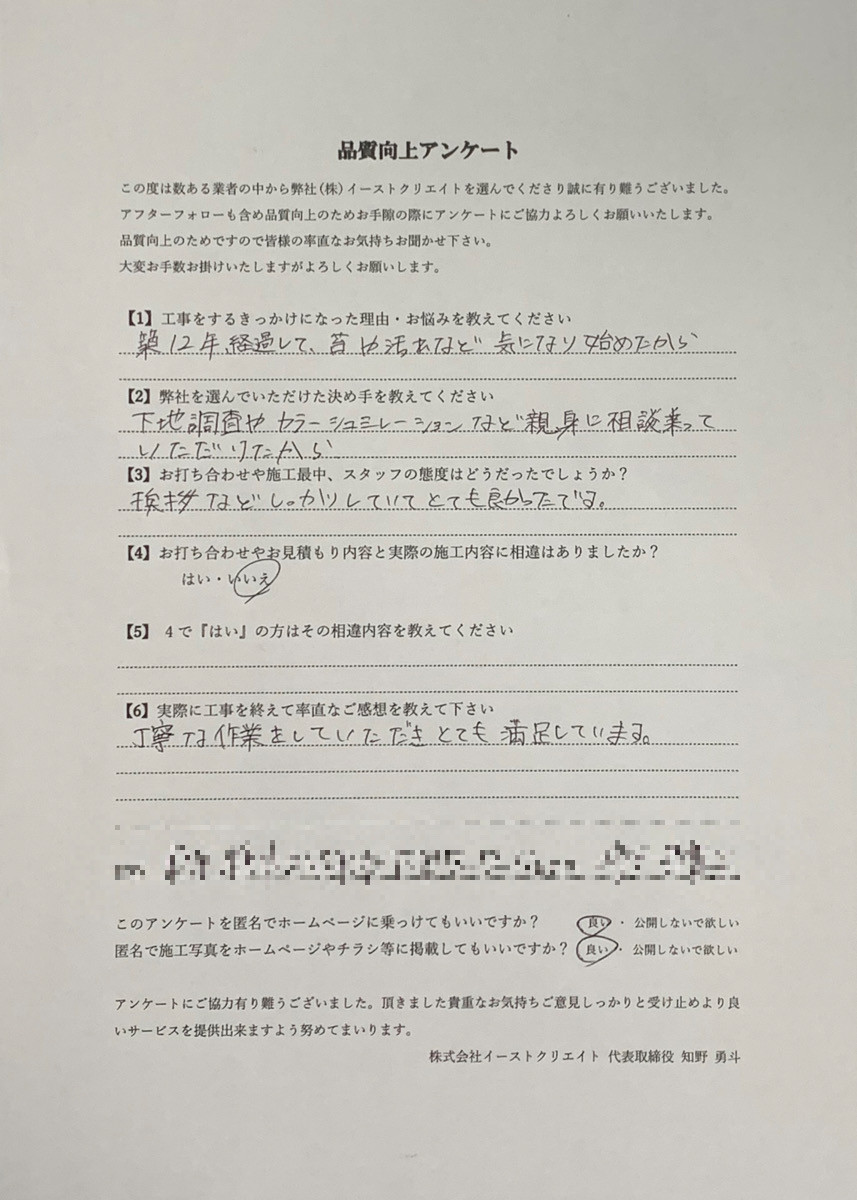 品質向上アンケート
この度は数ある業者の中から弊社(株)イーストクリエイトを選んでくださり誠に有り難うございました。
アフターフォローも含め品質向上のためお手隙の際にアンケートにご協力よろしくお願いいたします。
品質向上のためですので皆様の率直なお気持ちお聞かせ下さい。
大変お手数お掛けいたしますがよろしくお願いします。
【1】工事をするきっかけになった理由・お悩みを教えてください
築12年経過して、苔や汚れなど気になり始めたから
【2】弊社を選んでいただけた決め手を教えてください
下地調査やカラーシュミレーションなど親身に相談業って
いただけたから
【3】お打ち合わせや施工最中、スタッフの態度はどうだったでしょうか？
挨拶などしっかりしていてとても良かったです。
【4】お打ち合わせやお見積もり内容と実際の施工内容に相違はありましたか？
はい・いいえ
【5】 4で『はい』の方はその相違内容を教えてください
【6】実際に工事を終えて率直なご感想を教えて下さい
丁寧な作業をしていただきとても満足しています。
このアンケートを匿名でホームページに乗っけてもいいですか？ 良い・公開しないで欲しい
匿名で施工写真をホームページやチラシ等に掲載してもいいですか？ 良い・公開しないで欲しい
アンケートにご協力有り難うございました。頂きました貴重なお気持ちご意見しっかりと受け止めより良
いサービスを提供出来ますよう努めてまいります。
株式会社イーストクリエイト 代表取締役 知野 勇斗